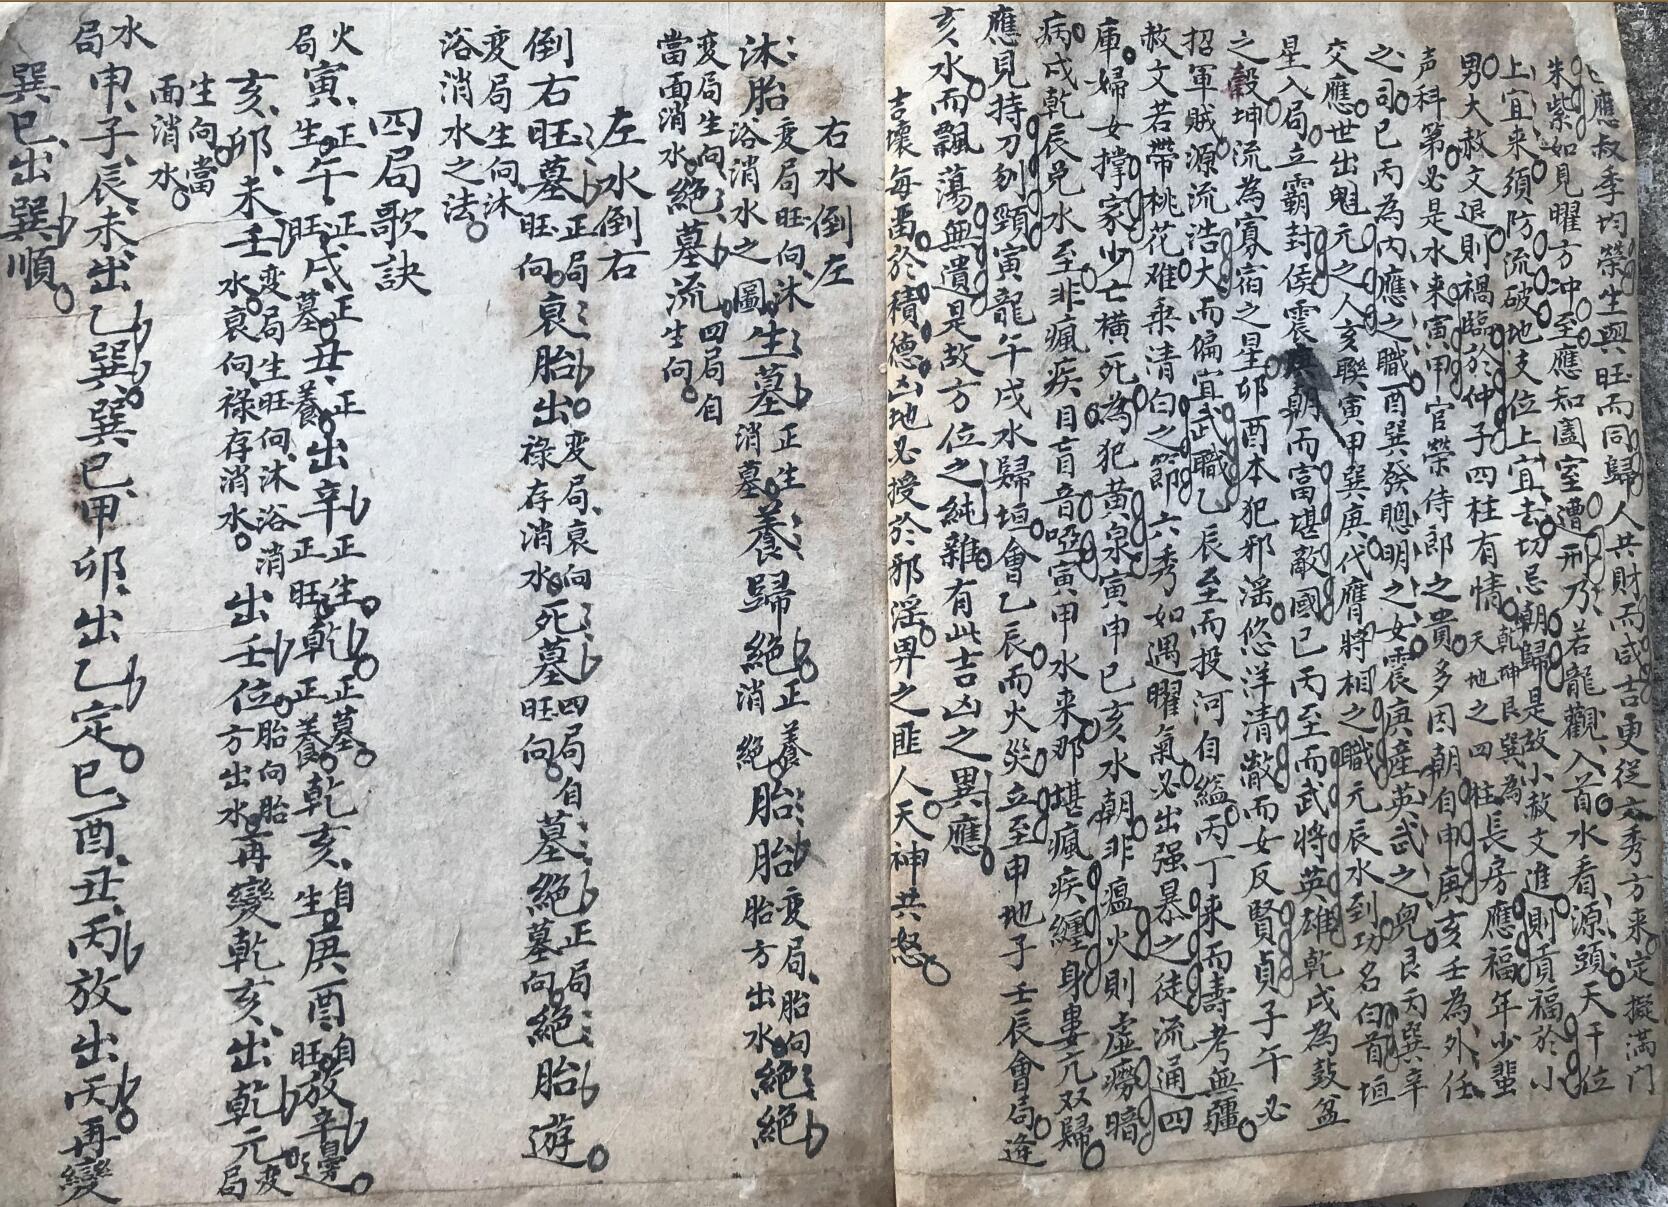 已應叔季均榮生與旺而同歸人共財而咸吉更従六秀方来定擬滿门
朱紫如見曜方冲至應知闔室遭刑乃若龍觀入首水看源頭天干位
上宜来須防流破地支位上宜去切忌朝歸是故小赦文進則頂福於小
男大赦文退則禍臨於仲子四柱有情乾坤艮巽為天地之四柱長房應福年少蜚
声科第必是水来寅甲官榮侍郎之貴多因朝自申庚亥壬為外任
之司巳丙為内應之職酉巽發聰明之女震庚產英武之児艮丙巽辛
交應世出魁元之人亥聯寅甲巽庚代膺將相之職元辰水到功名白首垣
星入局立霸封侯震庚朝而富堪敵國巳丙至而武将英雄乾戌為鼓盆
之殺坤流為寡宿之星卯酉本犯邪淫悠洋清澈而女反賢貞子午必
招軍賊源流浩大而偏宜武職乙辰至而投河自縊丙丁来而壽考無疆
赦文若帶桃花难乘清白之節六秀如遇曜氣必出强暴之徒流通四
庫婦女撑家少亡橫死為犯黄泉寅申巳亥水朝非瘟火則虛癆暗
病戌乾辰兌水至非瘋疾目盲音啞寅甲水来那堪瘋疾纏身婁亢双歸
應見持刀刎頸寅龍午戌水歸垣會乙辰而火災立至申地子壬辰會局逢
亥水而飄蕩無遺是故方位之純雜有此吉凶之異應
吉壤每畱於積德凶地必授於邪淫畀之匪人天神共怒
右水倒左
沐胎変局旺向沐浴消水之圖生墓正生消墓養歸絕正養消絕胎胎変局胎向胎方出水絕絕
変局生向當面消水絕墓流四局自生向
左水倒右
倒右旺墓正局旺向衰胎出変局衰向祿存消水死墓四局自旺向墓絕正局墓向絕胎遊
変局生向沐浴消水之法
四局歌訣
火局寅正生午正旺戌正墓丑正養出辛正生正旺乾正墓正養乾亥自生庚酉自旺放辛邊
亥卯未壬変局生旺向沐浴消水衰向祿存消水出壬位胎向胎方出水再變乾亥出乾元変局
生向當面消水
水局申子辰未出乙巽巽巳甲卯出乙定巳酉丑丙放出丙再變
巽巳出巽順